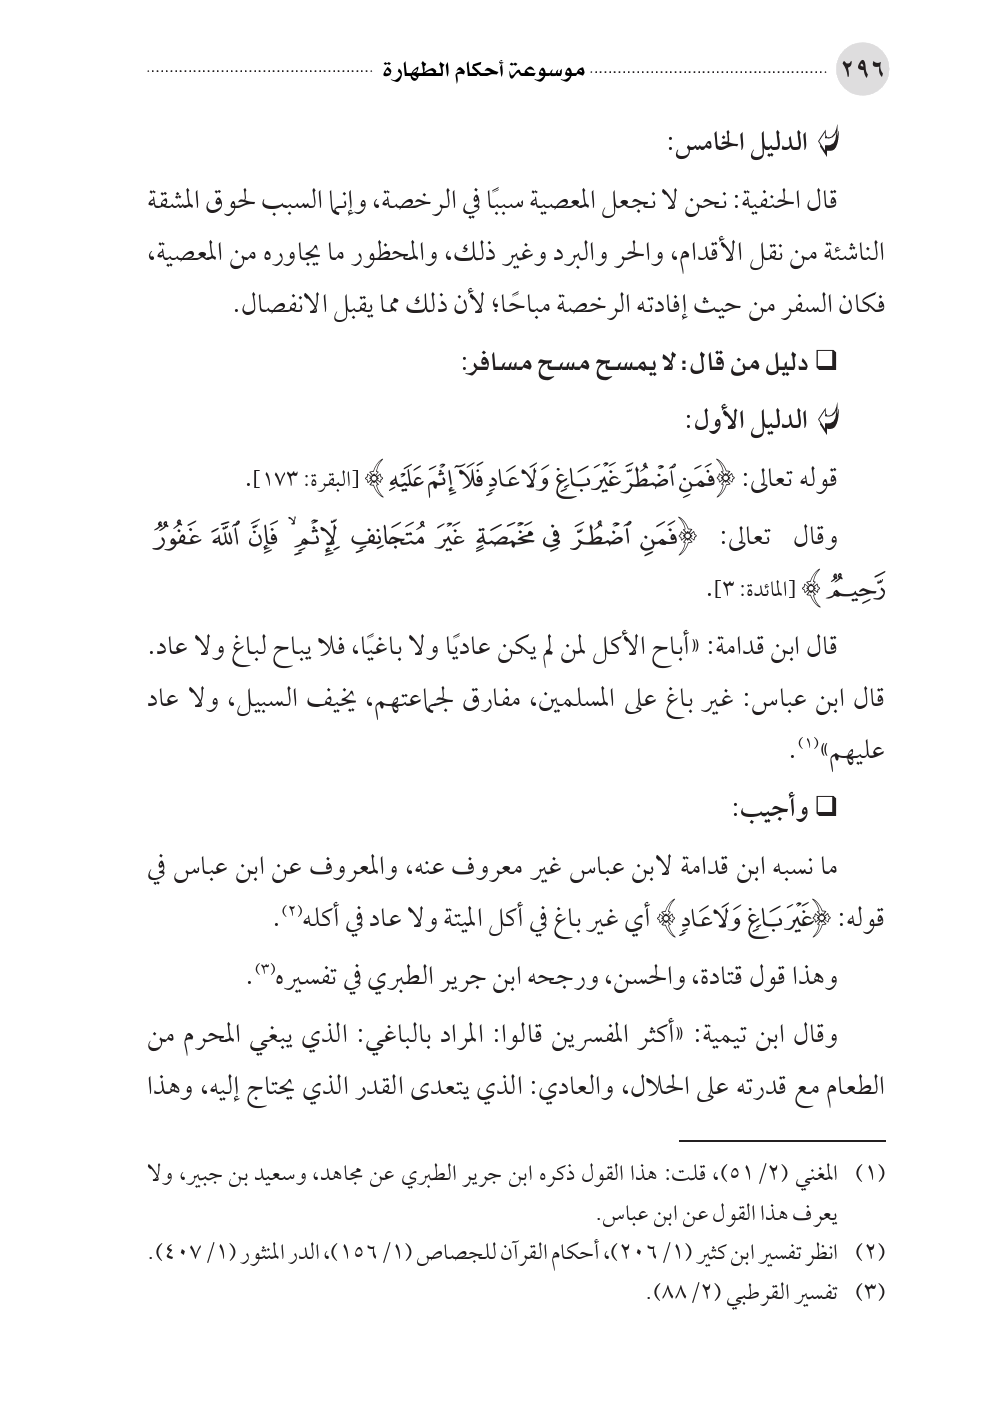 ٢٩٦ موسوعة أحكام الطهارة
الدليل الخامس:
قال الحنفية: نحن لا نجعل المعصية سببًا في الرخصة، وإنما السبب لحوق المشقة
الناشئة من نقل الأقدام، والحر والبرد وغير ذلك، والمحظور ما يجاوره من المعصية،
فكان السفر من حيث إفادته الرخصة مباحًا؛ لأن ذلك مما يقبل الانفصال.
❑ دليل من قال: لا يمسح مسح مسافر:
الدليل الأول:
قوله تعالى: ﴿فَمَنِ ٱضْطُرَّ غَيْرَ بَاغٍ وَلَا عَادٍ فَلَآ إِثْمَ عَلَيْهِ﴾ [البقرة: ١٧٣].
وقال تعالى: ﴿فَمَنِ ٱضْطُرَّ فِى مَخْمَصَةٍ غَيْرَ مُتَجَانِفٍ لِّإِثْمٍ ۙ فَإِنَّ ٱللَّهَ غَفُورٌ
رَّحِيمٌ﴾ [المائدة: ٣].
قال ابن قدامة: «أباح الأكل لمن لم يكن عاديًا ولا باغيًا، فلا يباح لباغ ولا عاد.
قال ابن عباس: غير باغ على المسلمين، مفارق لجماعتهم، يخيف السبيل، ولا عاد
عليهم»(١).
❑ وأجيب:
ما نسبه ابن قدامة لابن عباس غير معروف عنه، والمعروف عن ابن عباس في
قوله: ﴿غَيْرَ بَاغٍ وَلَا عَادٍ﴾ أي غير باغ في أكل الميتة ولا عاد في أكله(٢).
وهذا قول قتادة، والحسن، ورجحه ابن جرير الطبري في تفسيره(٣).
وقال ابن تيمية: «أكثر المفسرين قالوا: المراد بالباغي: الذي يبغي المحرم من
الطعام مع قدرته على الحلال، والعادي: الذي يتعدى القدر الذي يحتاج إليه، وهذا
(١) المغني (٢/ ٥١)، قلت: هذا القول ذكره ابن جرير الطبري عن مجاهد، وسعيد بن جبير، ولا
يعرف هذا القول عن ابن عباس.
(٢) انظر تفسير ابن كثير (١/ ٢٠٦)، أحكام القرآن للجصاص (١/ ١٥٦)، الدر المنثور (١/ ٤٠٧).
(٣) تفسير القرطبي (٢/ ٨٨).